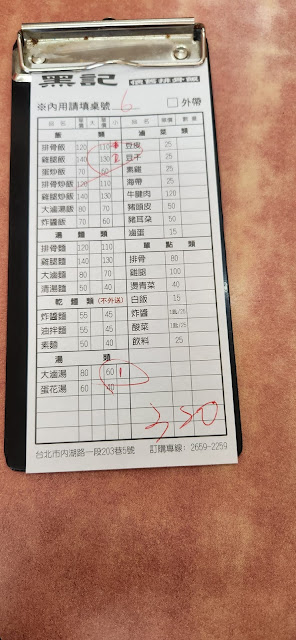 黑記 懷舊排骨飯
※內用請填桌號 6 □外帶
品名 單價 大 單價 小 品名 單價 數量
飯類 滷菜類
排骨飯 120 110 豆皮 25
雞腿飯 140 130 豆干 25
蛋炒飯 70 60 素雞 25
排骨炒飯 120 110 海帶 25
雞腿炒飯 140 130 牛腱肉 120
大滷湯飯 80 70 豬頭皮 50
炸醬飯 70 60 豬耳朵 50
湯麵類 滷蛋 15
排骨麵 120 110 單點類
雞腿麵 140 130 排骨 80
大滷麵 80 70 雞腿 100
清湯麵 50 40 燙青菜 40
乾麵類(不外送) 白飯 15
炸醬麵 55 45 炸醬
油拌麵 55 45 酸菜
素麵 50 40 飲料 25
湯類
大滷湯 80 60 1
蛋花湯 60 40
350
台北市內湖路一段203巷5號 訂購專線：2659-2259